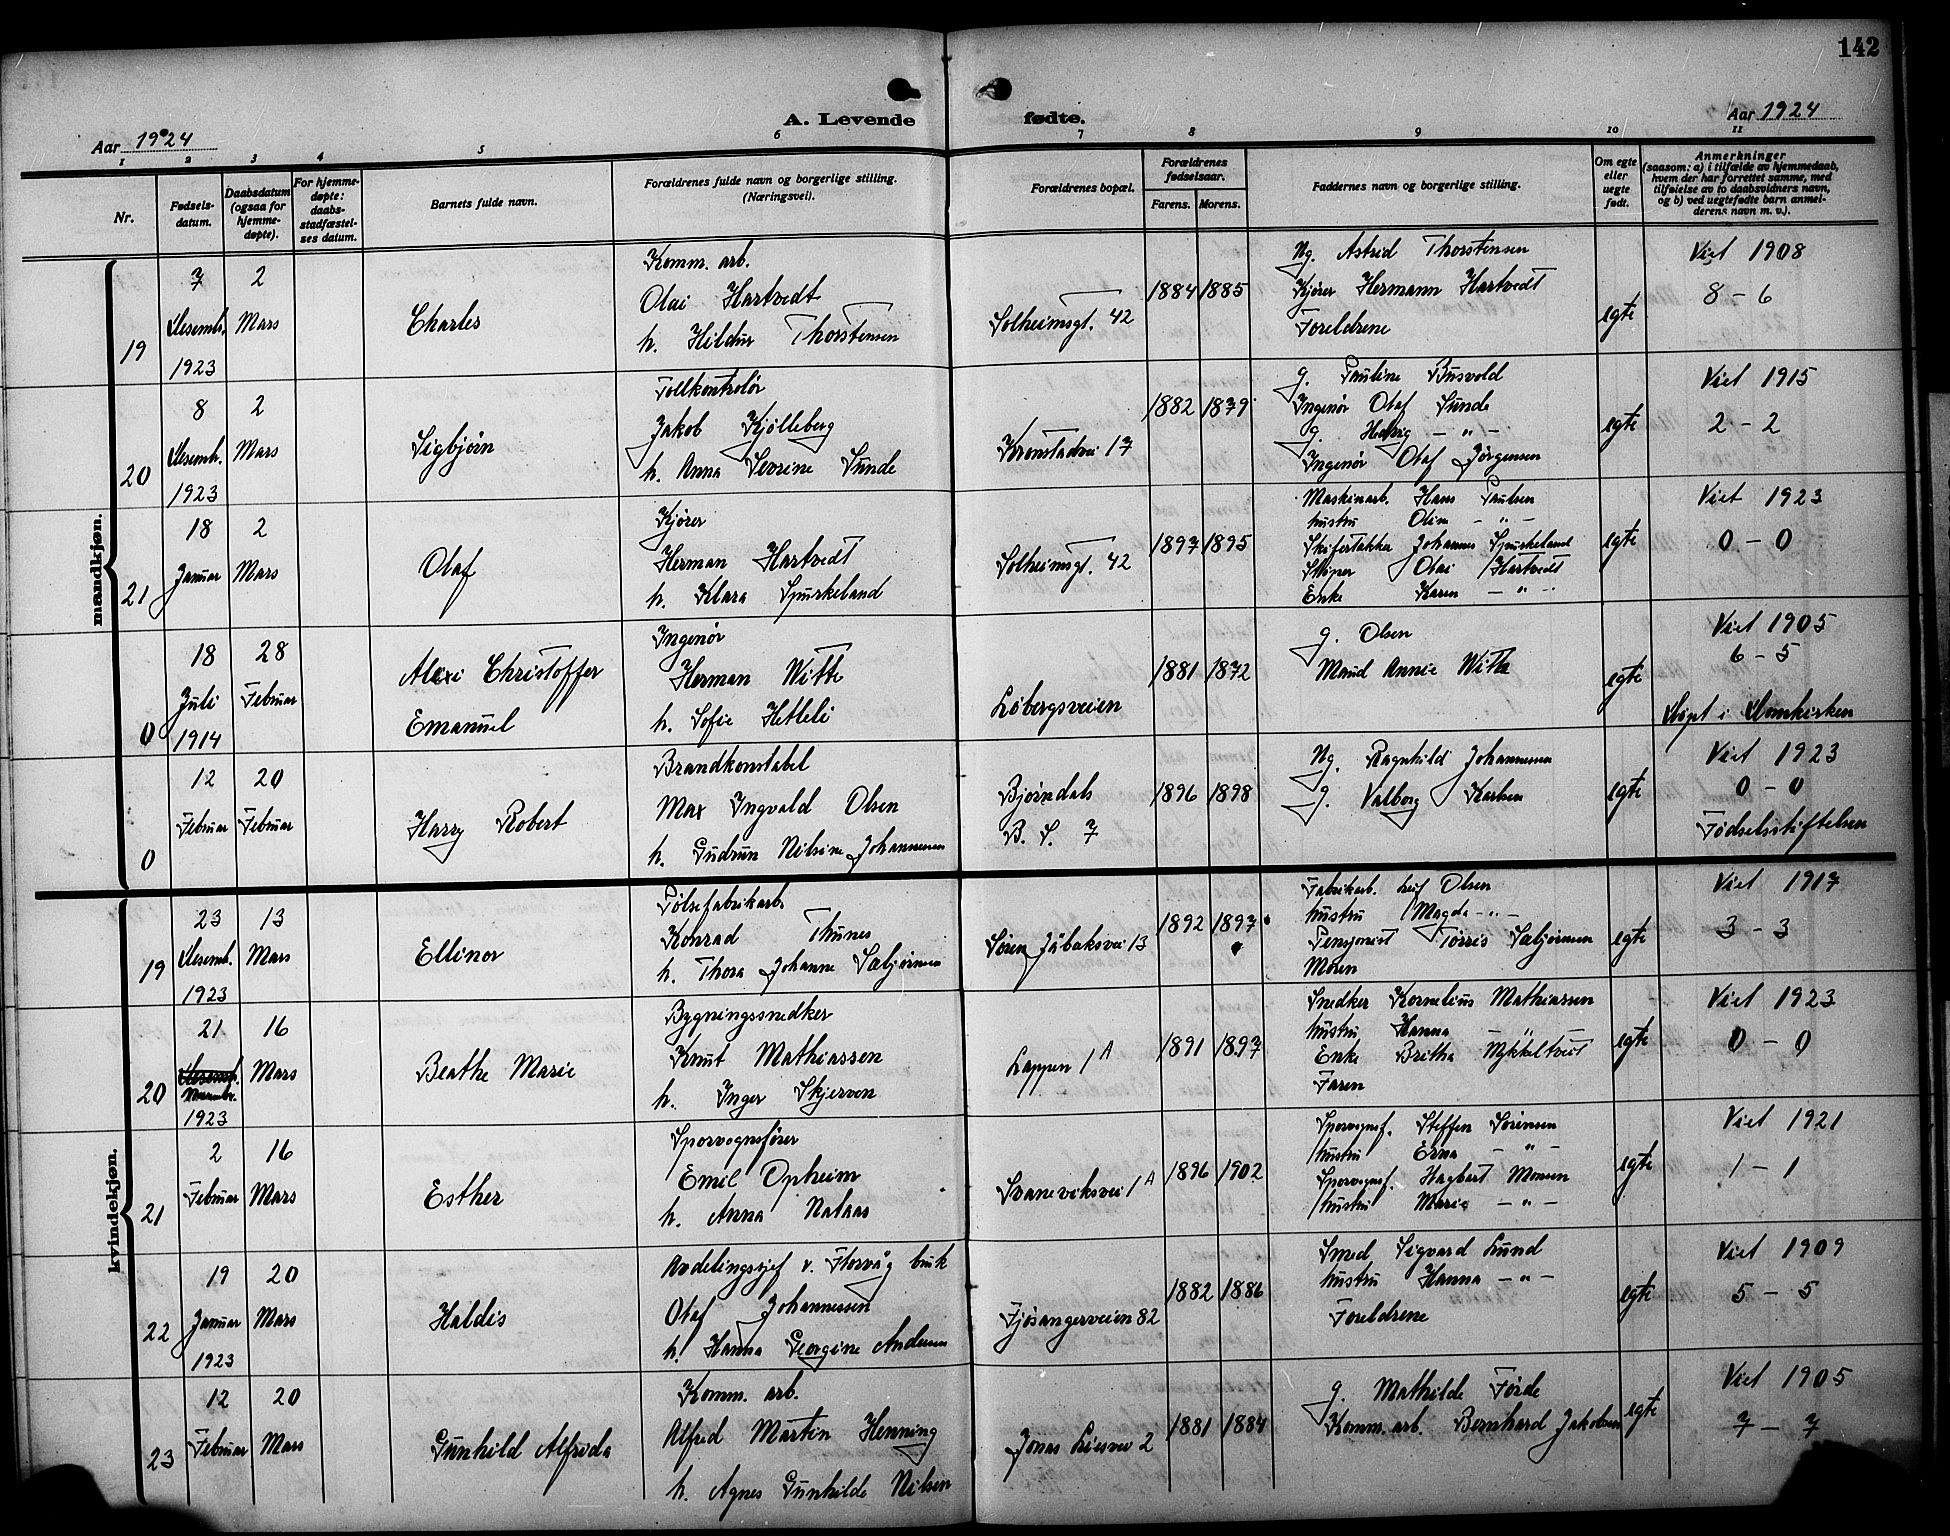 142
Aar 1924
A. Levende fødte.
Aar 1924
1 2 3 4 5 6 7 8 9 10 11
Nr.
Fødsels-
datum.
Daabsdatum
(ogsaa for
hjemme-
døpte).
For hjemme-
døpte:
daabs-
stadfæstel-
ses datum.
Barnets fulde navn.
Forældrenes fulde navn og borgerlige stilling.
(Næringsvei).
Forældrenes bopæl.
Forældrenes
fødselsaar.
Farens. Morens.
Faddernes navn og borgerlige stilling.
Om egte
eller
uegte
født.
Anmerkninger
(saasom: a) i tilfælde av hjemmedaab,
hvem der har forrettet samme, med
tilføielse av to daabsvidners navn,
og b) ved uegtefødte barn anmel-
derens navn m. v.).
mandkjøn.
19
7
Desemb.
1923
2
Mars
Charles
Komm. arb.
Olai Hartvedt
h. Hildur Thorstensen
Solheimsgt. 42
1884 1885
Ug. Astrid Thorstensen
Kjører Hermann Hartvedt
Foreldrene
egte
Viet 1908
8 - 6
20
8
Desemb.
1923
2
Mars
Sigbjørn
Tollkontrolør
Jakob Kjølleberg
h. Anna Severine Sunde
Kronstadvei 17
1882 1879
g. Pauline Busvold
Ingenør Olaf Sunde
g. Hedvig - " -
Ingenør Olaf Jørgensen
egte
Viet 1915
2 - 2
21
18
Januar
2
Mars
Olaf
Kjører
Herman Hartvedt
h. Klara Spurkeland
Solheimsgt. 42
1897 1895
Maskinarb. Hans Paulsen
hustru Olina - " -
Skifertekker Johannes Spurkeland
Støper Olai Hartvedt
Enke Karen - " -
egte
Viet 1923
0 - 0
0
18
Juli
1914
28
Februar
Alexi Christoffer
Emanuel
Ingenør
Herman Witte
h. Sofie Hetleli
Løbergsveien
1881 1872
g. Olsen
Maud Annie Witte
egte
Viet 1905
6 - 5
Døpt i Domkirken
0
12
Februar
20
Februar
Harry Robert
Brandkonstabel
Max Ingvald Olsen
h. Gudrun Nilsine Johannesen
Bjørndals
B. S. 7
1896 1898
Ug. Ragnhild Johannesen
g. Valborg Karlsen
egte
Viet 1923
0 - 0
Fødselsstiftelsen
kvindekjøn.
19
23
Desemb.
1923
13
Mars
Ellinor
Pølsefabrikarb.
Konrad Thunes
h. Thora Johanne Sæbjørnsen
Søren Jåbæksvei 13
1892 1897
Fabrikarb. Leif Olsen
hustru Magda - " -
Pensjonist Tørris Sæbjørnsen
Moren
egte
Viet 1917
3 - 3
20
21
Novembr.
1923
16
Mars
Beathe Marie
Bygningssnedker
Knut Mathiassen
h. Inger Skjerven
Lappen 1 A
1891 1897
Snedker Kornelius Mathiassen
hustru Hanna - " -
Enke Britha Mykkeltveit
Faren
egte
Viet 1923
0 - 0
21
2
Februar
16
Mars
Esther
Sporvognsfører
Emil Opheim
h. Anna Nataas
Svaneviksvei 1 A
1896 1902
Sporvognsf. Steffen Sørensen
hustru Erna - " -
Sporvognsf. Hagbart Monsen
hustru Marie - " -
egte
Viet 1921
1 - 1
22
19
Januar
1923
20
Mars
Haldis
Avdelingssjef v. Florvåg bruk
Olaf Johannessen
h. Hanna Georgine Andersen
Fjøsangerveien 82
1882 1886
Smed Sigvard Lund
hustru Hanna - " -
Foreldrene
egte
Viet 1909
5 - 5
23
12
Februar
20
Mars
Gunhild Alfrida
Komm. arb.
Alfred Martin Henning
h. Agnes Gunhilde Nilsen
Jonas Liesvei 2
1881 1884
g. Mathilde Førde
Komm. arb. Bernhard Jakobsen
egte
Viet 1905
7 - 7